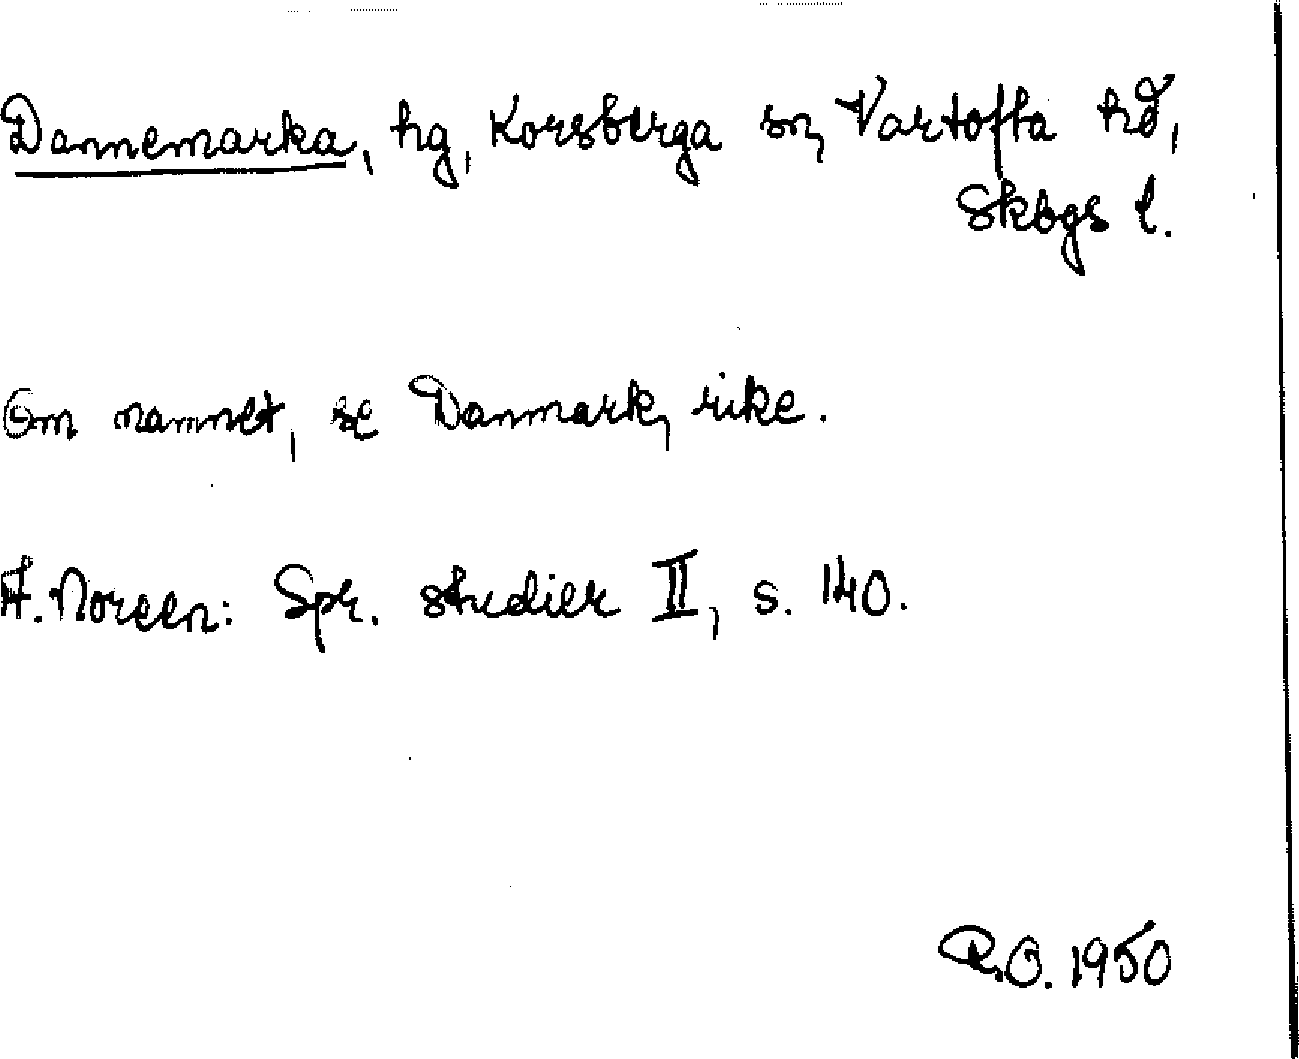 Dannemarka, hg, Korsberga sn, Vartofta hd,
Skbgs l.
Om namnet, se Danmark, rike.
A. Noreen: Spr. studier II, s. 140.
R.O. 1950